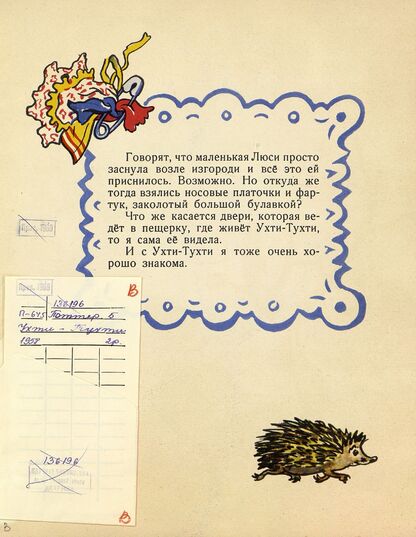 Говорят, что маленькая Люси просто
заснула возле изгороди и всё это ей
приснилось. Возможно. Но откуда же
тогда взялись носовые платочки и фар-
тук, заколотый большой булавкой?
Что же касается двери, которая ве-
дёт в пещерку, где живёт Ухти-Тухти,
то я сама её видела.
И с Ухти-Тухти я тоже очень хо-
рошо знакома.
В
136196
П-645 Поттер. Б
Ухти - Тухти
1958 2р.
136196
В